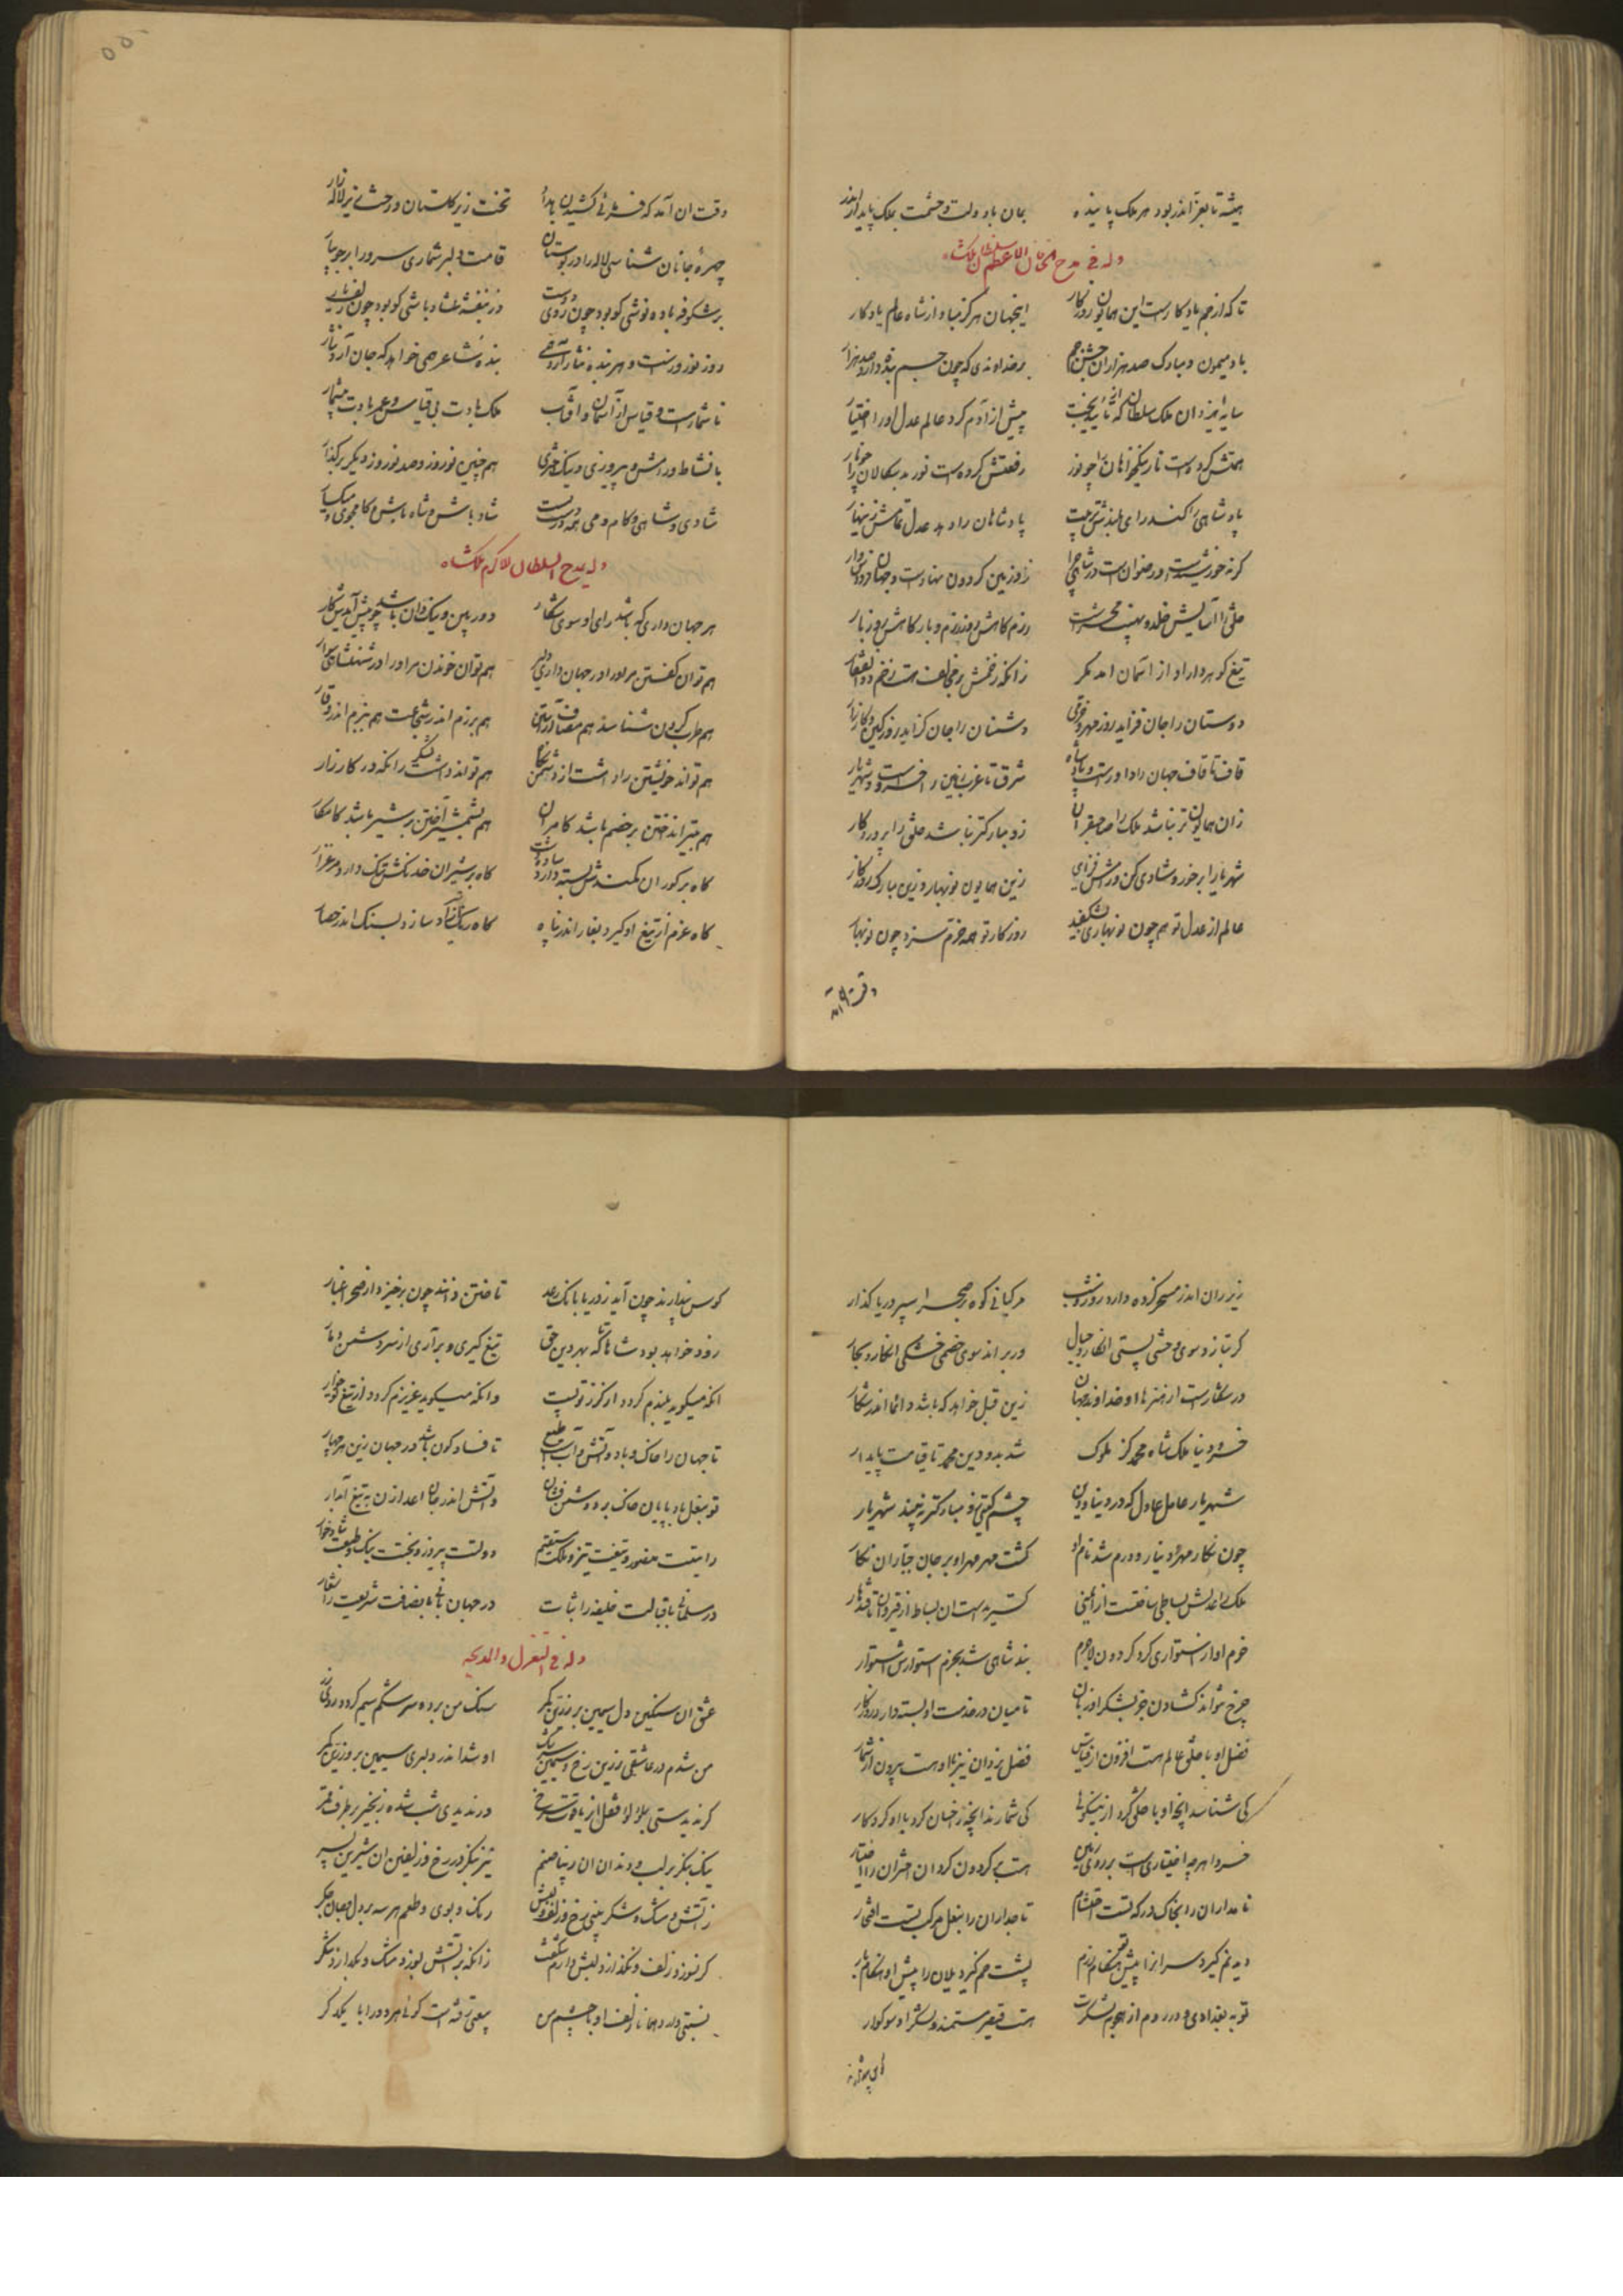 همیشه تا بعز اندر بود هر ملک پاینده بمان با دولت و حشمت بملک پایدار اندر
وله فی مدح الخاقان الاعظم سلطان ملکشاه
تا که از جم یادکارست این همایون روزکار اینجهان هرکز مباد از شاه عالم یادکار
باد میمون و مبارک صد هزاران جشن جم بر خداوندی که چون جم بنده دارد صد هزار
سایه ایزدان ملک سلطان که از تائید بخت پیش از آدم کرد عالم عدل او را اختیار
همتش کرده است نار نیکخواهان را چو نور رفعتش کرده است نور بدسکالان را چو نار
پادشاهی را کند رای بلندش تربیت پادشاهان را دهد عدل تمامش زینهار
کرنه خورشیدست و رضوان است در شاهی چرا زو زمین کردون نهادست و جهان فردوس وار
خلق را آسایش خلد و نهیب محشرست رزم کاهش روز رزم و بارکاهش روز بار
تیغ کوهردار او از آسمان آمد مکر زانکه زخمش بر مخالف هست زخم ذوالفقار
دوستان را جان فزاید روز مهر و خرمی دشمنان را جان کزاید روز کین و کارزار
قاف تا قاف جهان را داورست و پادشاه شرق تا غرب زمین را خسروست و شهریار
زان همایون تر نباشد ملک را صاحبقران زو مبارکتر نباشد خلق را پروردکار
شهریارا برخور و شادی کن و رامش فزای زین همایون نوبهار و زین مبارک روزکار
عالم از عدل تو هم چون نوبهاری بشکفید روزکار تو همه خرم سزد چون نوبهار
وقت ان آمد
وقت ان آمد که فرش نی کشیدن بامداد تخت زیر کلستان و رخت زیر لاله زار
چهرهٔ جانان شناسی لاله را در بوستان قامت دلبر شماری سرو را بر جویبار
بر شکوفه باده نوشی کو بود چون روی دوست در بنفشه شاد باشی کو بود چون زلف یار
روز نوروزست و هر بنده نثار آرد همی بنده شاعر همی خواهد که جان آرد نثار
تا شمارست و قیاس از آسمان و آفتاب ملک بادت بی قیاس و عمر بادت بیشمار
با نشاط و رامش و پیروزی و نیک اختری هم چنین نوروز و صد نوروز دیکر برکذار
شادی و شاهی و کام و می همه در دست تست شاد باش و شاه باش و کام جوی و میکسار
وله بمدح السلطان الاکرم ملکشاه
هر جهان داری که باشد رای او سوی شکار دوربین و نیک دان باشد چو پیش آیدش کار
هم توان کفتن مر او را در جهان داری دلیر هم توان خواندن مر او را در شهنشاهی سوار
هم طرب کردن شناسد هم مصاف آراستن هم برزم اندر شجاعت هم ببزم اندر وقار
هم تواند خویشتن را داشت از دشمن نکاه هم تواند داشت لشکر را نکه در کارزار
هم بتیر انداختن بر خصم باشد کامران هم بشمشیر آختن بر شیر باشد کامکار
کاه بر کوران کمندش بسته دارد ساده دشت کاه بر شیران خدنکش تنک دارد مرغزار
کاه غرم از تیغ او کیرد بغار اندر پناه کاه رنک از باد سازد بسنک اندر حصار
زیر ران اندر مسخر کرده دارد روز و شب مرکبانی کوه و صحرا سپر دریا کذار
کر بتازد سوی وحشی پستی انکارد جبال ور براند سوی خصمی خشکی انکارد بحار
در شکارست از هنرها او خداوند جهان زین قبل خواهد که باشد دائما اندر شکار
خسرو دنیا ملک شاه محمد کز ملوک شد بدو دین محمد تا قیامت پایدار
شهریار عامل عادل که در دنیا و دین چشم کیتی زو مبارکتر نه بیند شهریار
چون نکار مهر و دینار و درم شد نام او کشت مهر مهر او بر جان جباران نکار
ملک را عدلش بساطی بافت از ایمنی کستریدست ان بساط از قیروان تا قندهار
حزم او از استواری کرد کردون لاجرم بند شاهی شد بحزم استوارش استوار
چرخ نتواند کشادن جز بشکر او زبان تا میان در خدمت او بسته دارد روزکار
فضل او با خلق عالم هست افزون از قیاس فضل یزدان نیز با او هست بیرون از شمار
کی شناسد انچه او با خلق کرد از نیکوئی کی شمارند انچه زاحسان کرد با او کردکار
خسروا هرچه اختیاری هست بر روی زمین هست بر کردون کردان اختران را اختیار
نامداران را بخاک درکه تست احتشام تاجداران را بنعل مرکب تست افتخار
دیده نم کیرد سران را پیش تو هنکام رزم پشت خم کیرد یلان را پیش او هنکام بار
تو به بغدادی و در روم از هجوم لشکرت هست قیصر مستمند و لشکر او سوکوار
کوس پندارند چون آید ز دریا بانک رعد تاختن دانند چون برخیزد از صحرا غبار
زود خواهد بود شاها تا که بهر دین حق تیغ کیری و بر آری از سر دشمن دمار
انکه میکوید بلندم کردد از کرز تو پست وانکه میکوید عزیزم کردد از تیغ تو خوار
تا جهان را خاک و باد و آتش و آب است طبع تا فساد کون باشد در جهان زین هر چهار
تو بنعل بادپایان خاک بر دشمن فشان و آتش اندر جان اعدا زن به تیغ آبدار
رایتت منصور و تیغت تیز و ملکت مستقیم دولتت پیروز و بختت نیک و طبعت شادخوار
در مسلمانی باقبالت خلیفه را ثبات در جهان بانی بانصافت شریعت را شعار
وله فی التغزل والمدیحه
عشق ان سنکین دل سیمین بر زرین کمر سنک من برده سرشکم سیم کرد و روی زر
من شدم در عاشقی زرین رخ و سیمین سرشک او شد اندر دلبری سیمین بر و زرین کمر
کر ندیدستی بلولو قفل از یاقوت سرخ ور ندیدی شب شده زنجیر بر طرف قمر
نیک بنکر بر لب و دندان ان زیبا صنم تیز بنکر در رخ و زلفین ان شیرین پسر
ز آتش و مشک و شکر بینی رخ و زلف و لبش رنک و بوی و طعم هر سه بر دل و جان و جکر
کر نسوزد زلف و نکدازد لبش دارم شکفت زانکه بر آتش بسوزد مشک و بکدازد شکر
نسبتی دارد همانا زلف او با چشم من بیعتی رفته است کوئی هر دو را با یکدکر